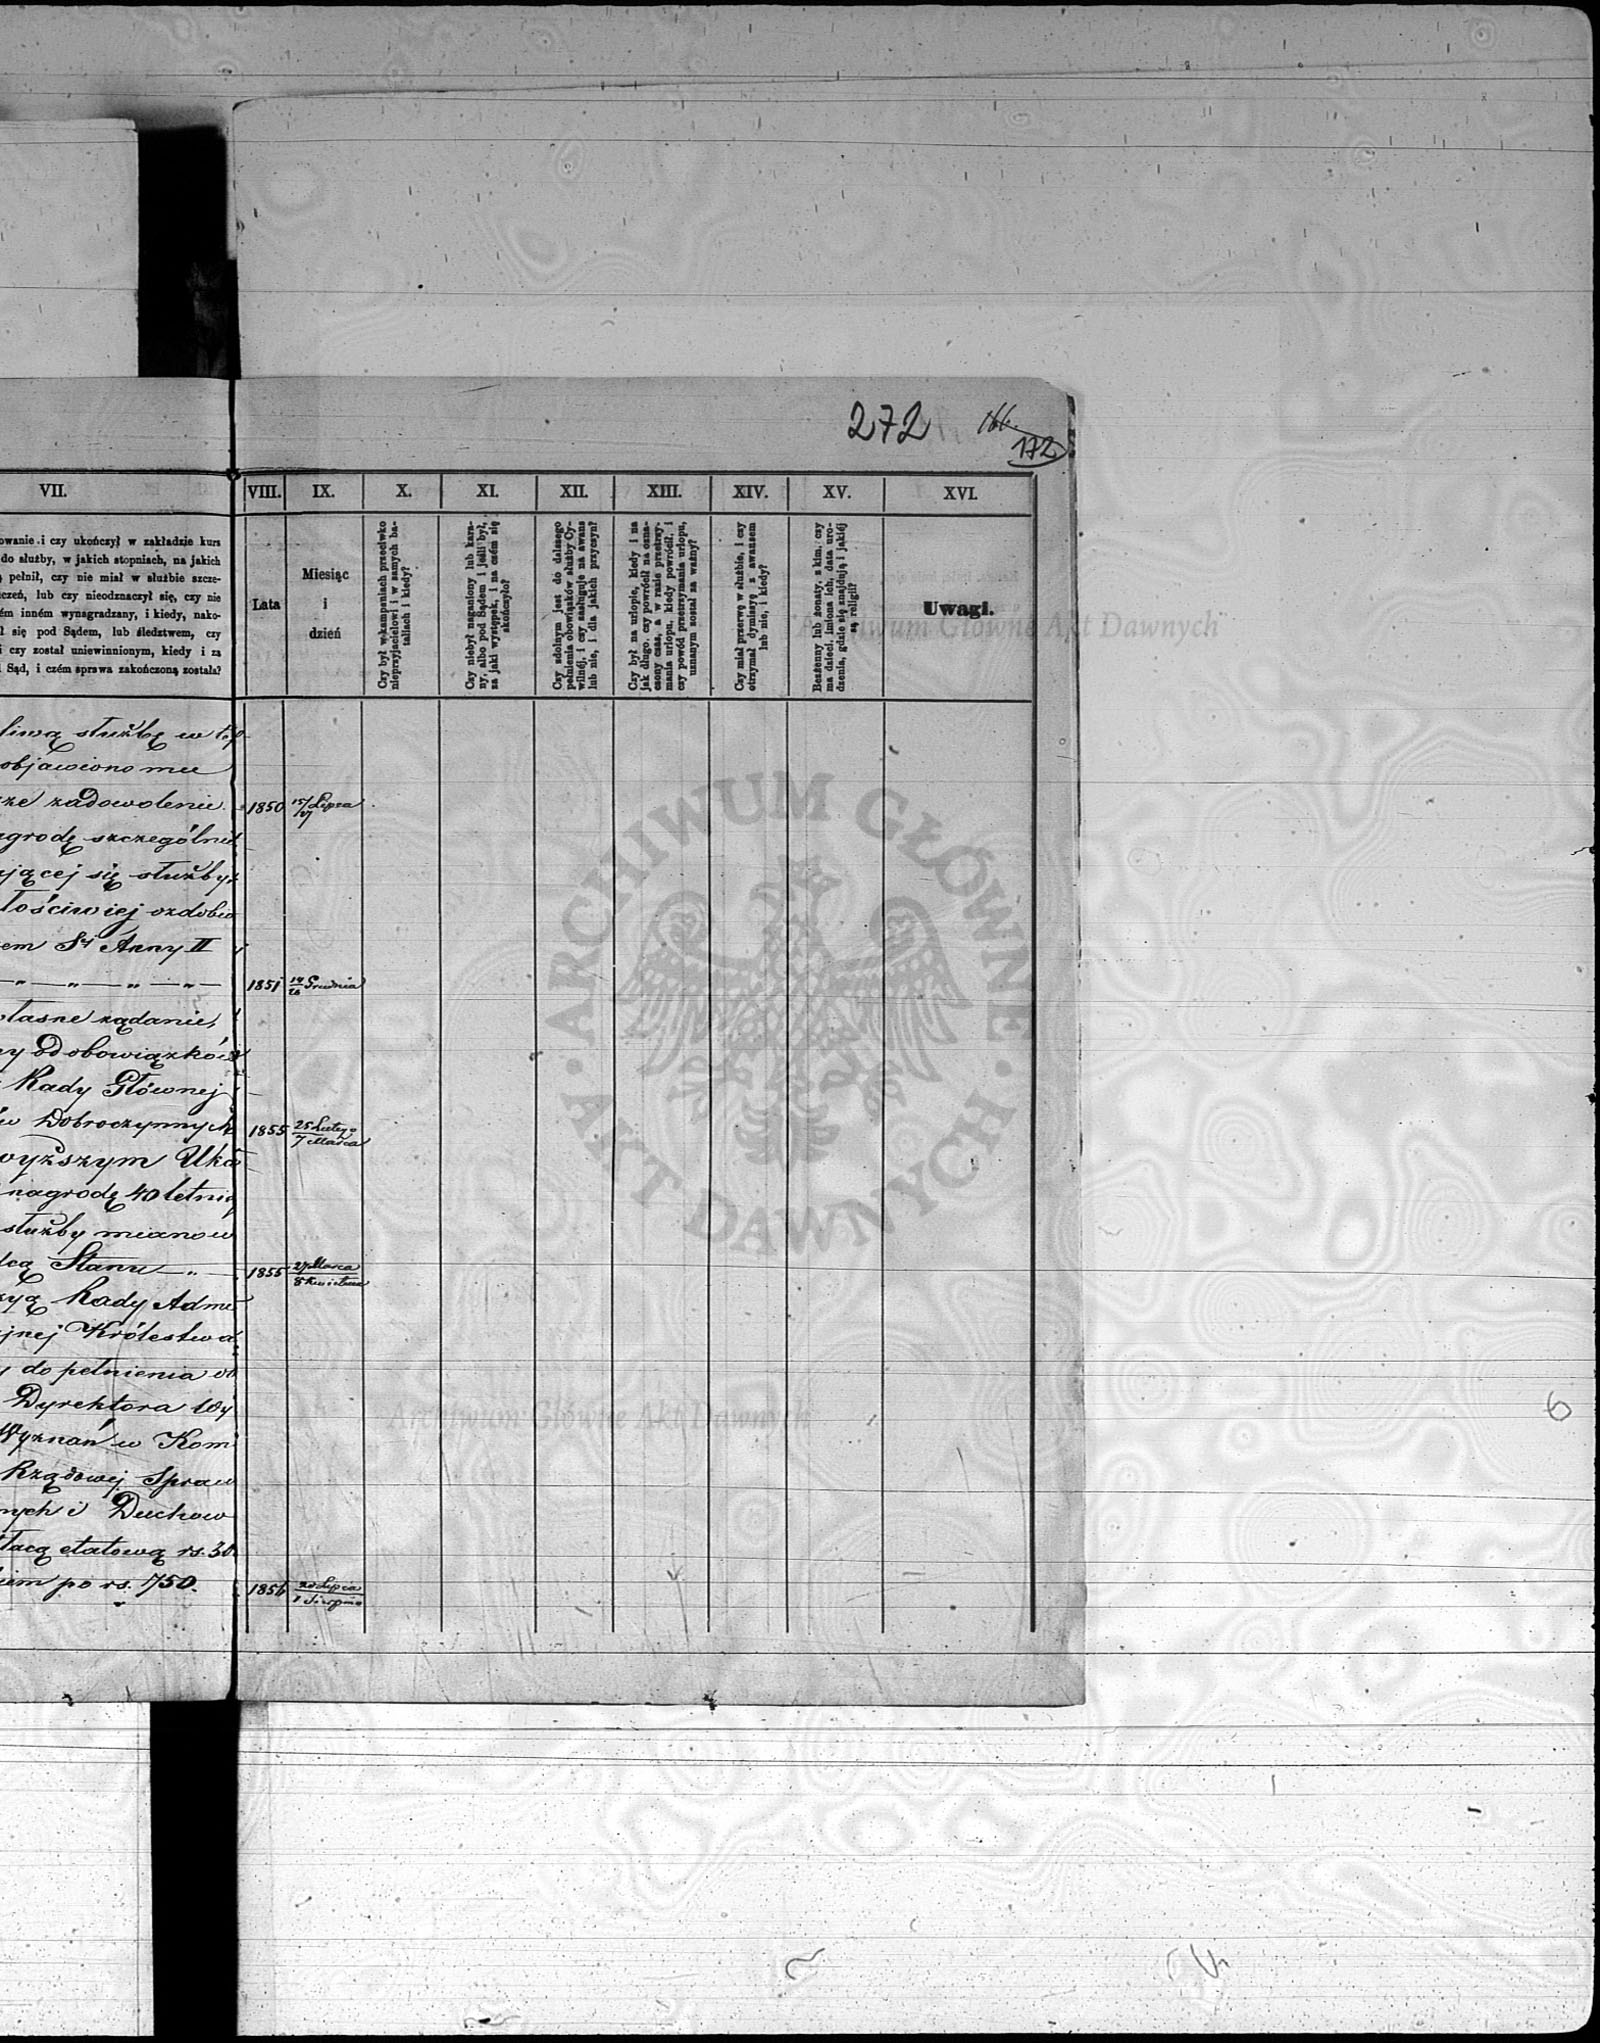 272
166.
172
VII.
VIII.
IX.
X.
XI.
XII.
XIII.
XIV.
XV.
XVI.
owanie i czy ukończył w zakładzie kurs
do służby, w jakich stopniach, na jakich
pełnił, czy nie miał w służbie szcze-
czeń, lub czy nieodznaczył się, czy nie
ém inném wynagradzany, i kiedy, nako-
ł się pod Sądem, lub śledztwem, czy
i czy został uniewinnionym, kiedy i za
i Sąd, i czém sprawa zakończoną została?
Lata
Miesiąc
i
dzień
Czy był w kampaniach przeciwko
nieprzyjacielowi i w samych ba-
taliach i kiedy?
Czy niebył naganiony lub kara-
ny, albo pod Sądem i jeśli był,
za jaki występek, i na czém się
skończyło?
Czy zdolnym jest do dalszego
pełnienia obowiązków służby Cy-
wilnéj, i czy zasługuje na awans
lub nie, i dla jakich przyczyn?
Czy był na urlopie, kiedy i na
jak długo, czy powrócił na ozna-
czony czas, a w razie przetrzy-
mania urlopu, kiedy powrócił, i
czy powód przetrzymania urlopu,
uznanym został za ważny?
Czy miał przerwę w służbie, i czy
otrzymał dymissyę z awansem
lub nie, i kiedy?
Bezżenny lub żonaty, z kim, czy
ma dzieci, imiona ich, data uro-
dzenia, gdzie się znajdują i jakiéj
są religii?
Uwagi.
liwą służbę w tej
objawiono mu
sze zadowolenie 1850 15/27 Lipca
agrodę szczególniej
jącej się służby,
łościwiej ozdobio
em Sej Anny II
1851 14/26 Grudnia
własne żądanie,
ny od obowiązków
Rady Głównej
ów Dobroczynnych 1855 25 Lutego / 7 Marca
wyższym Uka
nagrodę 40 letnią
służby mianow
dcą Stanu 1855 27 Marca / 8 Kwietnia
zyą Rady Admi
jnej Królestwa
y do pełnienia ob
Dyrektora Wy
Wyznań w Kom
Rządowej Spraw
nych i Duchow
łacą etatową rs. 30
iem po rs. 750. 1856 20 Lipca / 1 Sierpnia
Archiwum Główne Akt Dawnych
ARCHIWUM GŁÓWNE
AKT DAWNYCH
Archiwum Główne Akt Dawnych